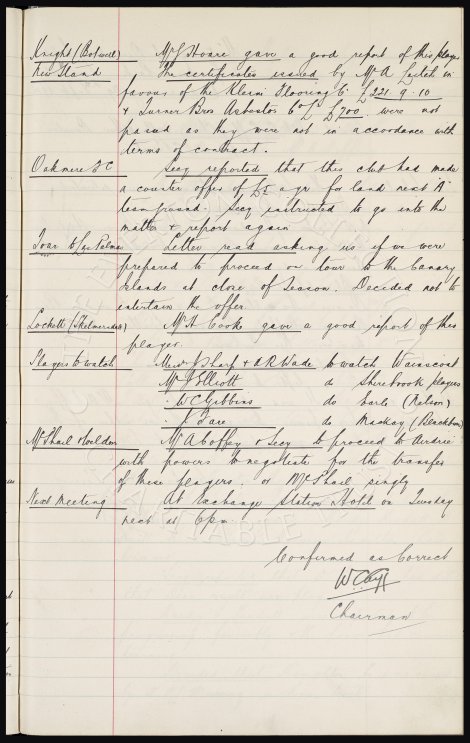 Knight (Botwell) Mr J Hoare gave a good report of this player
New Stand The certificates issued by Mr A Leitch in
favour of the Kleine Flooring Co £221. 9. 10
& Turner Bros Asbestos Co £700 were not
passed as they were not in accordance with
terms of contract.
Oakmere F C Secy reported that this club had made
a counter offer of a yr for land next "A"
team ground. Secy instructed to go into the
matter & report again
Tour to Las Palmas Letter read asking us if we were
prepared to proceed on tour to the Canary
Islands at close of season. Decided not to
entertain the offer.
Lockett (Skelmersdale) Mr H Cook gave a good report of this
player.
Players to watch Messrs Sharp & A R Wade to watch
Mr J Elliott do Shirebrook players
" W C Gibbins do Earle (Nelson)
" J Fare do Mackay (Blackburn)
McPhail & Weldon Mr A Coffey & Secy to proceed to Airdrie
with powers to negotiate for the transfer
of these players. or McPhail singly
Next Meeting At Exchange Station Hotel on Tuesday
next at 6pm.
Confirmed as Correct
W C Cuff
Chairman